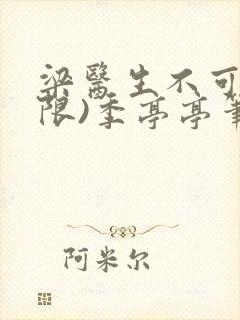 梁醫生不可
限)季亭亭
阿米尔